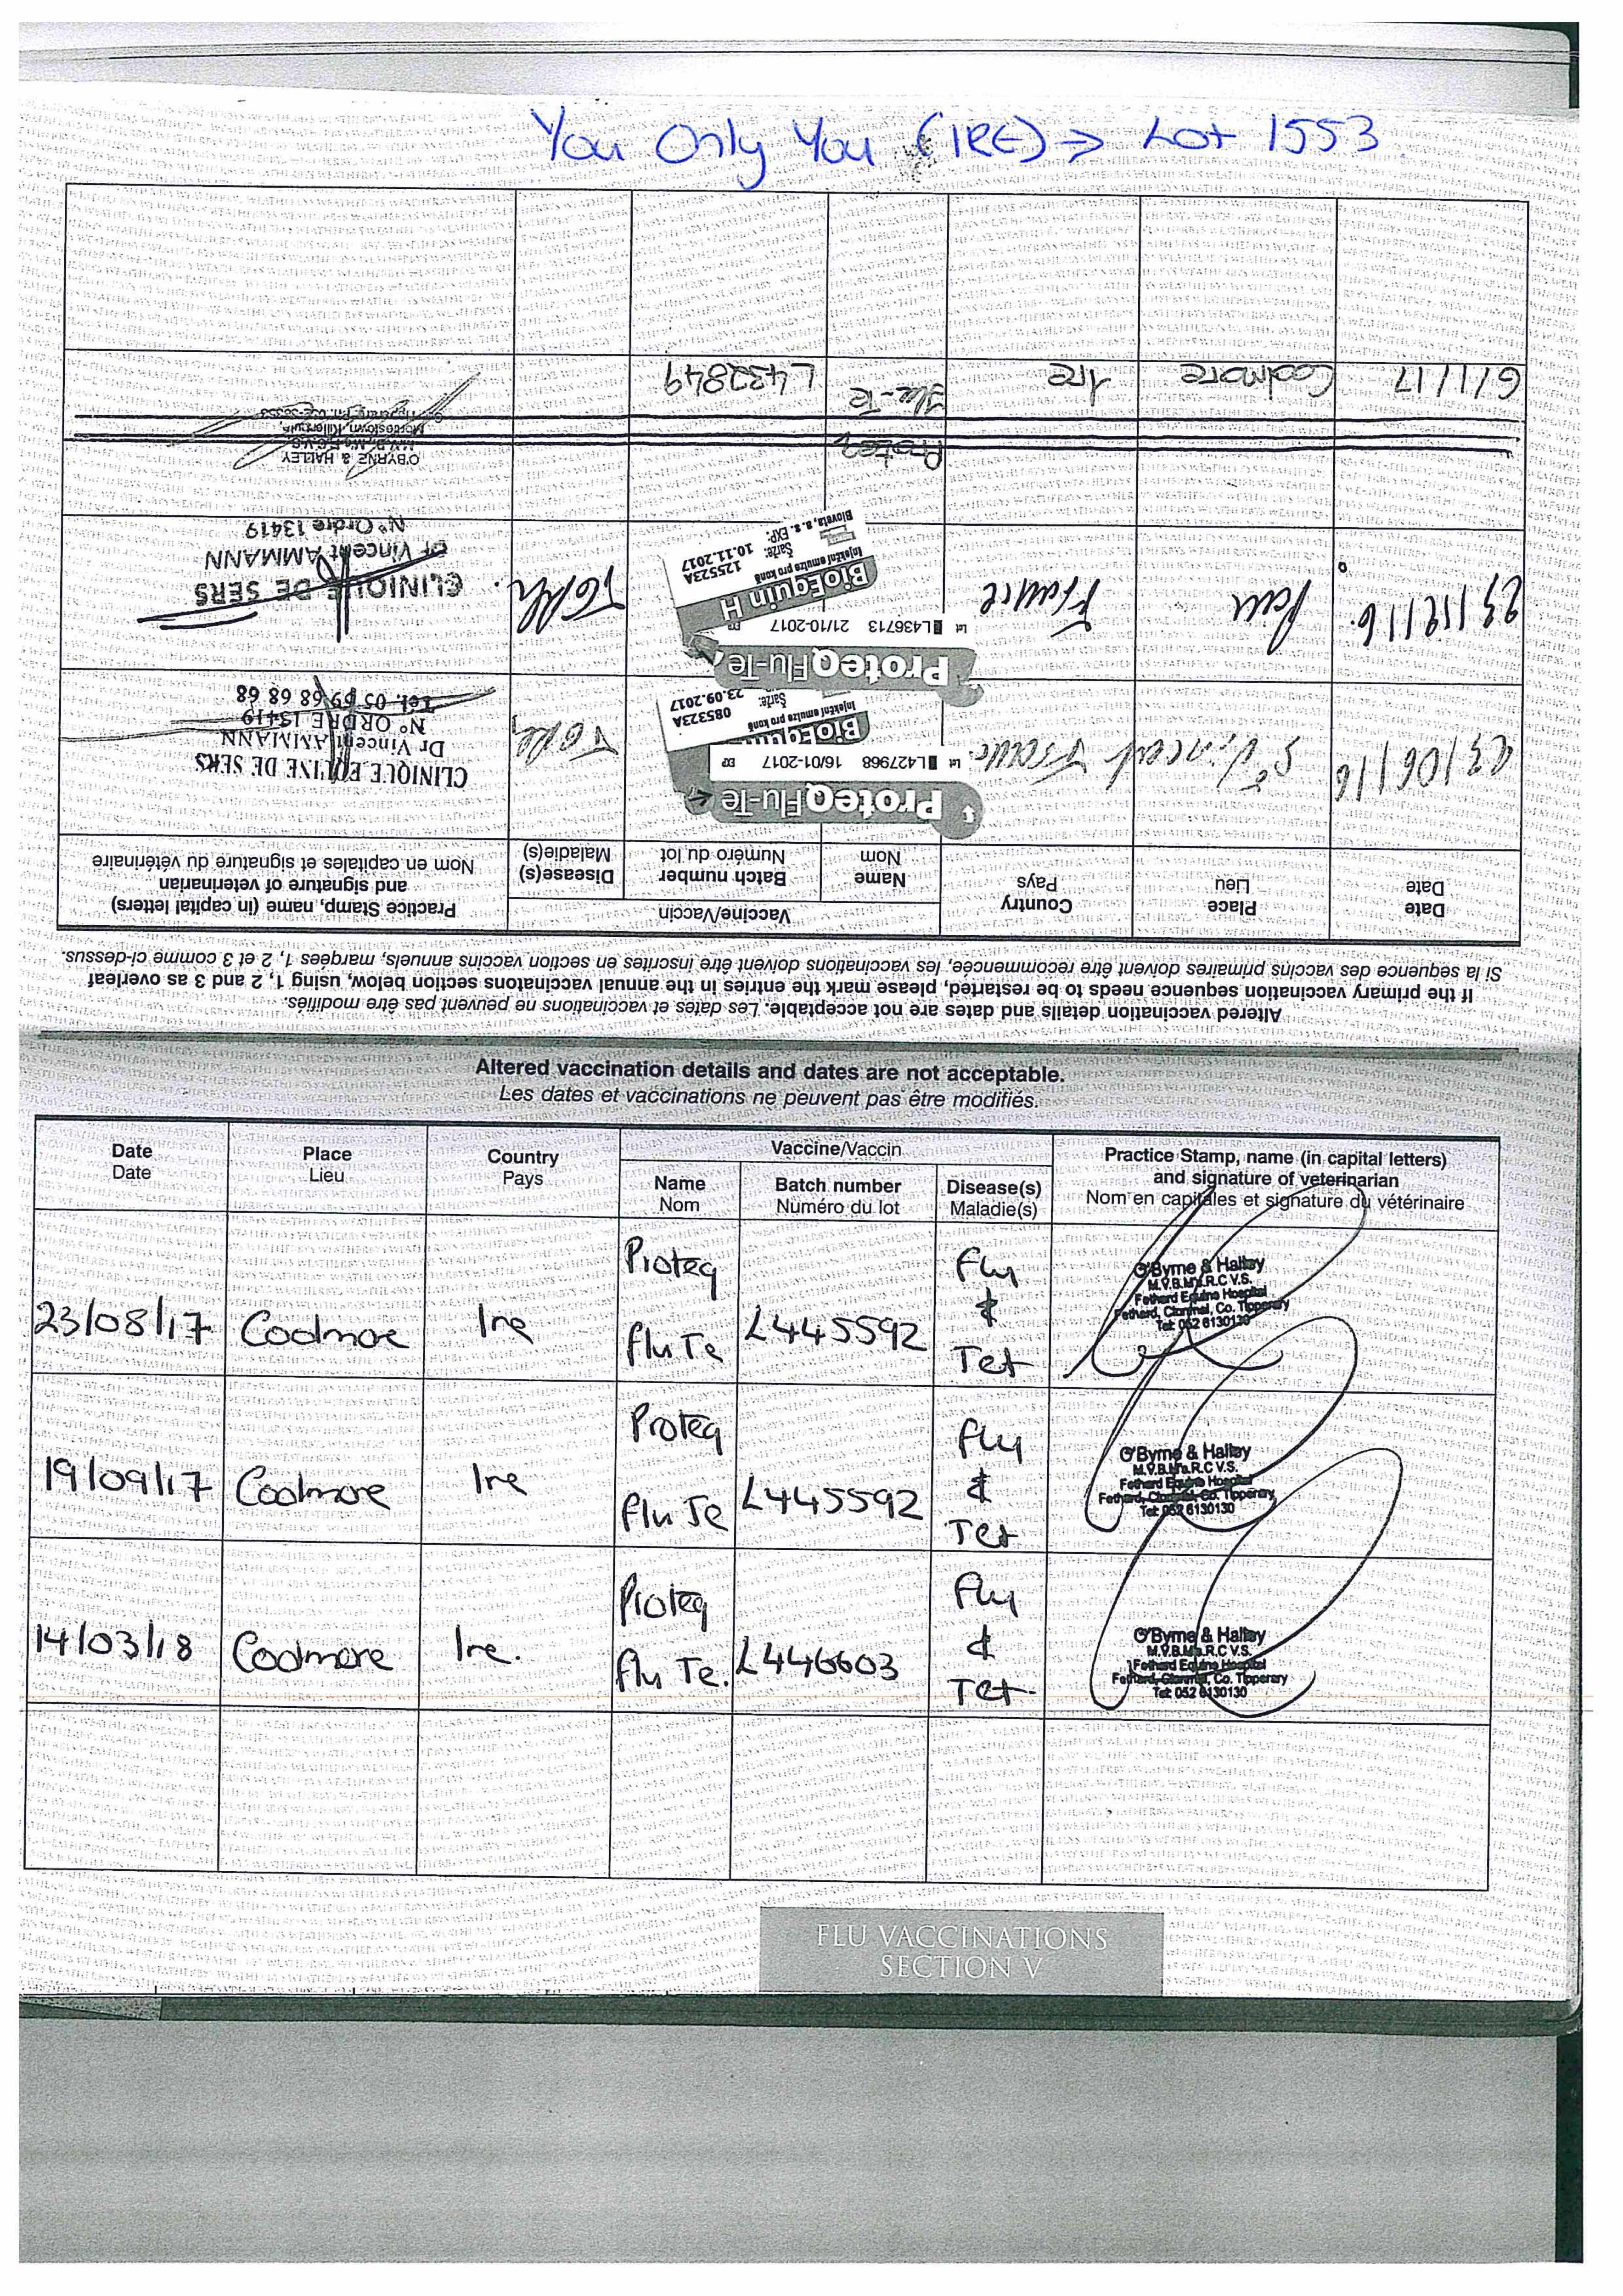 You Only You (IRE) → Lot 1553
Altered vaccination details and dates are not acceptable. Les dates et vaccinations ne peuvent pas être modifiés.
If the primary vaccination sequence needs to be restarted, please mark the entries in the annual vaccinatons section below, using 1, 2 and 3 as overleaf
Si la séquence des vaccins primaires doivent être recommencée, les vaccinations doivent être inscrites en section vaccins annuels, marqées 1, 2 et 3 comme ci-dessus.
Date Place Country Vaccine/Vaccin Practice Stamp, name (in capital letters)
Date Lieu Pays and signature of veterinarian
Name Batch number Disease(s) Nom en capitales et signature du vétérinaire
Nom Numéro du lot Maladie(s)
ProteqFlu-Te
Lot L427968 16/01-2017 EXP
BioEquin
Injekční emulze pro koně
085323A
Šarže: 23.09.2017
23/06/16 St Vincent France
CLINIQUE EQUINE DE SERS
Dr Vincent AMMANN
N° ORDRE 13419
Tél. 05 59 68 68 68
ProteqFlu-Te
Lot L436713 21/10-2017 EXP
BioEquin H
Injekční emulze pro koně
125523A
Šarže: 10.11.2017
Bioveta, a.s. EXP:
Pau France
CLINIQUE DE SERS
Dr Vincent AMMANN
N° Ordre 13419
Proteq
6/1/17 Coolmore Ire Flu-Te L432849
O'BYRNE & HALLEY
Altered vaccination details and dates are not acceptable.
Les dates et vaccinations ne peuvent pas être modifiés.
Date Place Country Vaccine/Vaccin Practice Stamp, name (in capital letters)
Date Lieu Pays and signature of veterinarian
Name Batch number Disease(s) Nom en capitales et signature du vétérinaire
Nom Numéro du lot Maladie(s)
Proteq Flu
23/08/17 Coolmore Ire Flu Te L445592 & Tet
O'Byrne & Halley
M.V.B.M's.R.C.V.S.
Fethard Equine Hospital
Fethard, Clonmel, Co. Tipperary
Tel: 052 6130130
Proteq Flu
19/09/17 Coolmore Ire Flu Te L445592 & Tet
O'Byrne & Halley
M.V.B.M's.R.C.V.S.
Fethard Equine Hospital
Fethard, Clonmel, Co. Tipperary
Tel: 052 6130130
Proteq Flu
14/03/18 Coolmore Ire. Flu Te. L446603 & Tet.
O'Byrne & Halley
M.V.B.M's.R.C.V.S.
Fethard Equine Hospital
Fethard, Clonmel, Co. Tipperary
Tel: 052 6130130
FLU VACCINATIONS
SECTION V